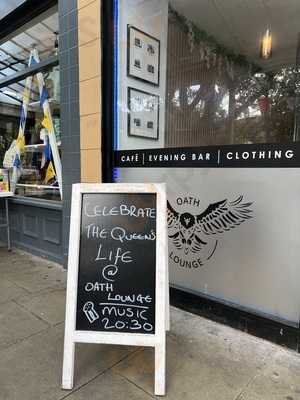 CAFÉ | EVENING BAR | CLOTHING
OATH
LOUNGE
CELEBRATE
THE QUEEN'S
LIFE
@
OATH
LOUNGE
MUSIC
20:30